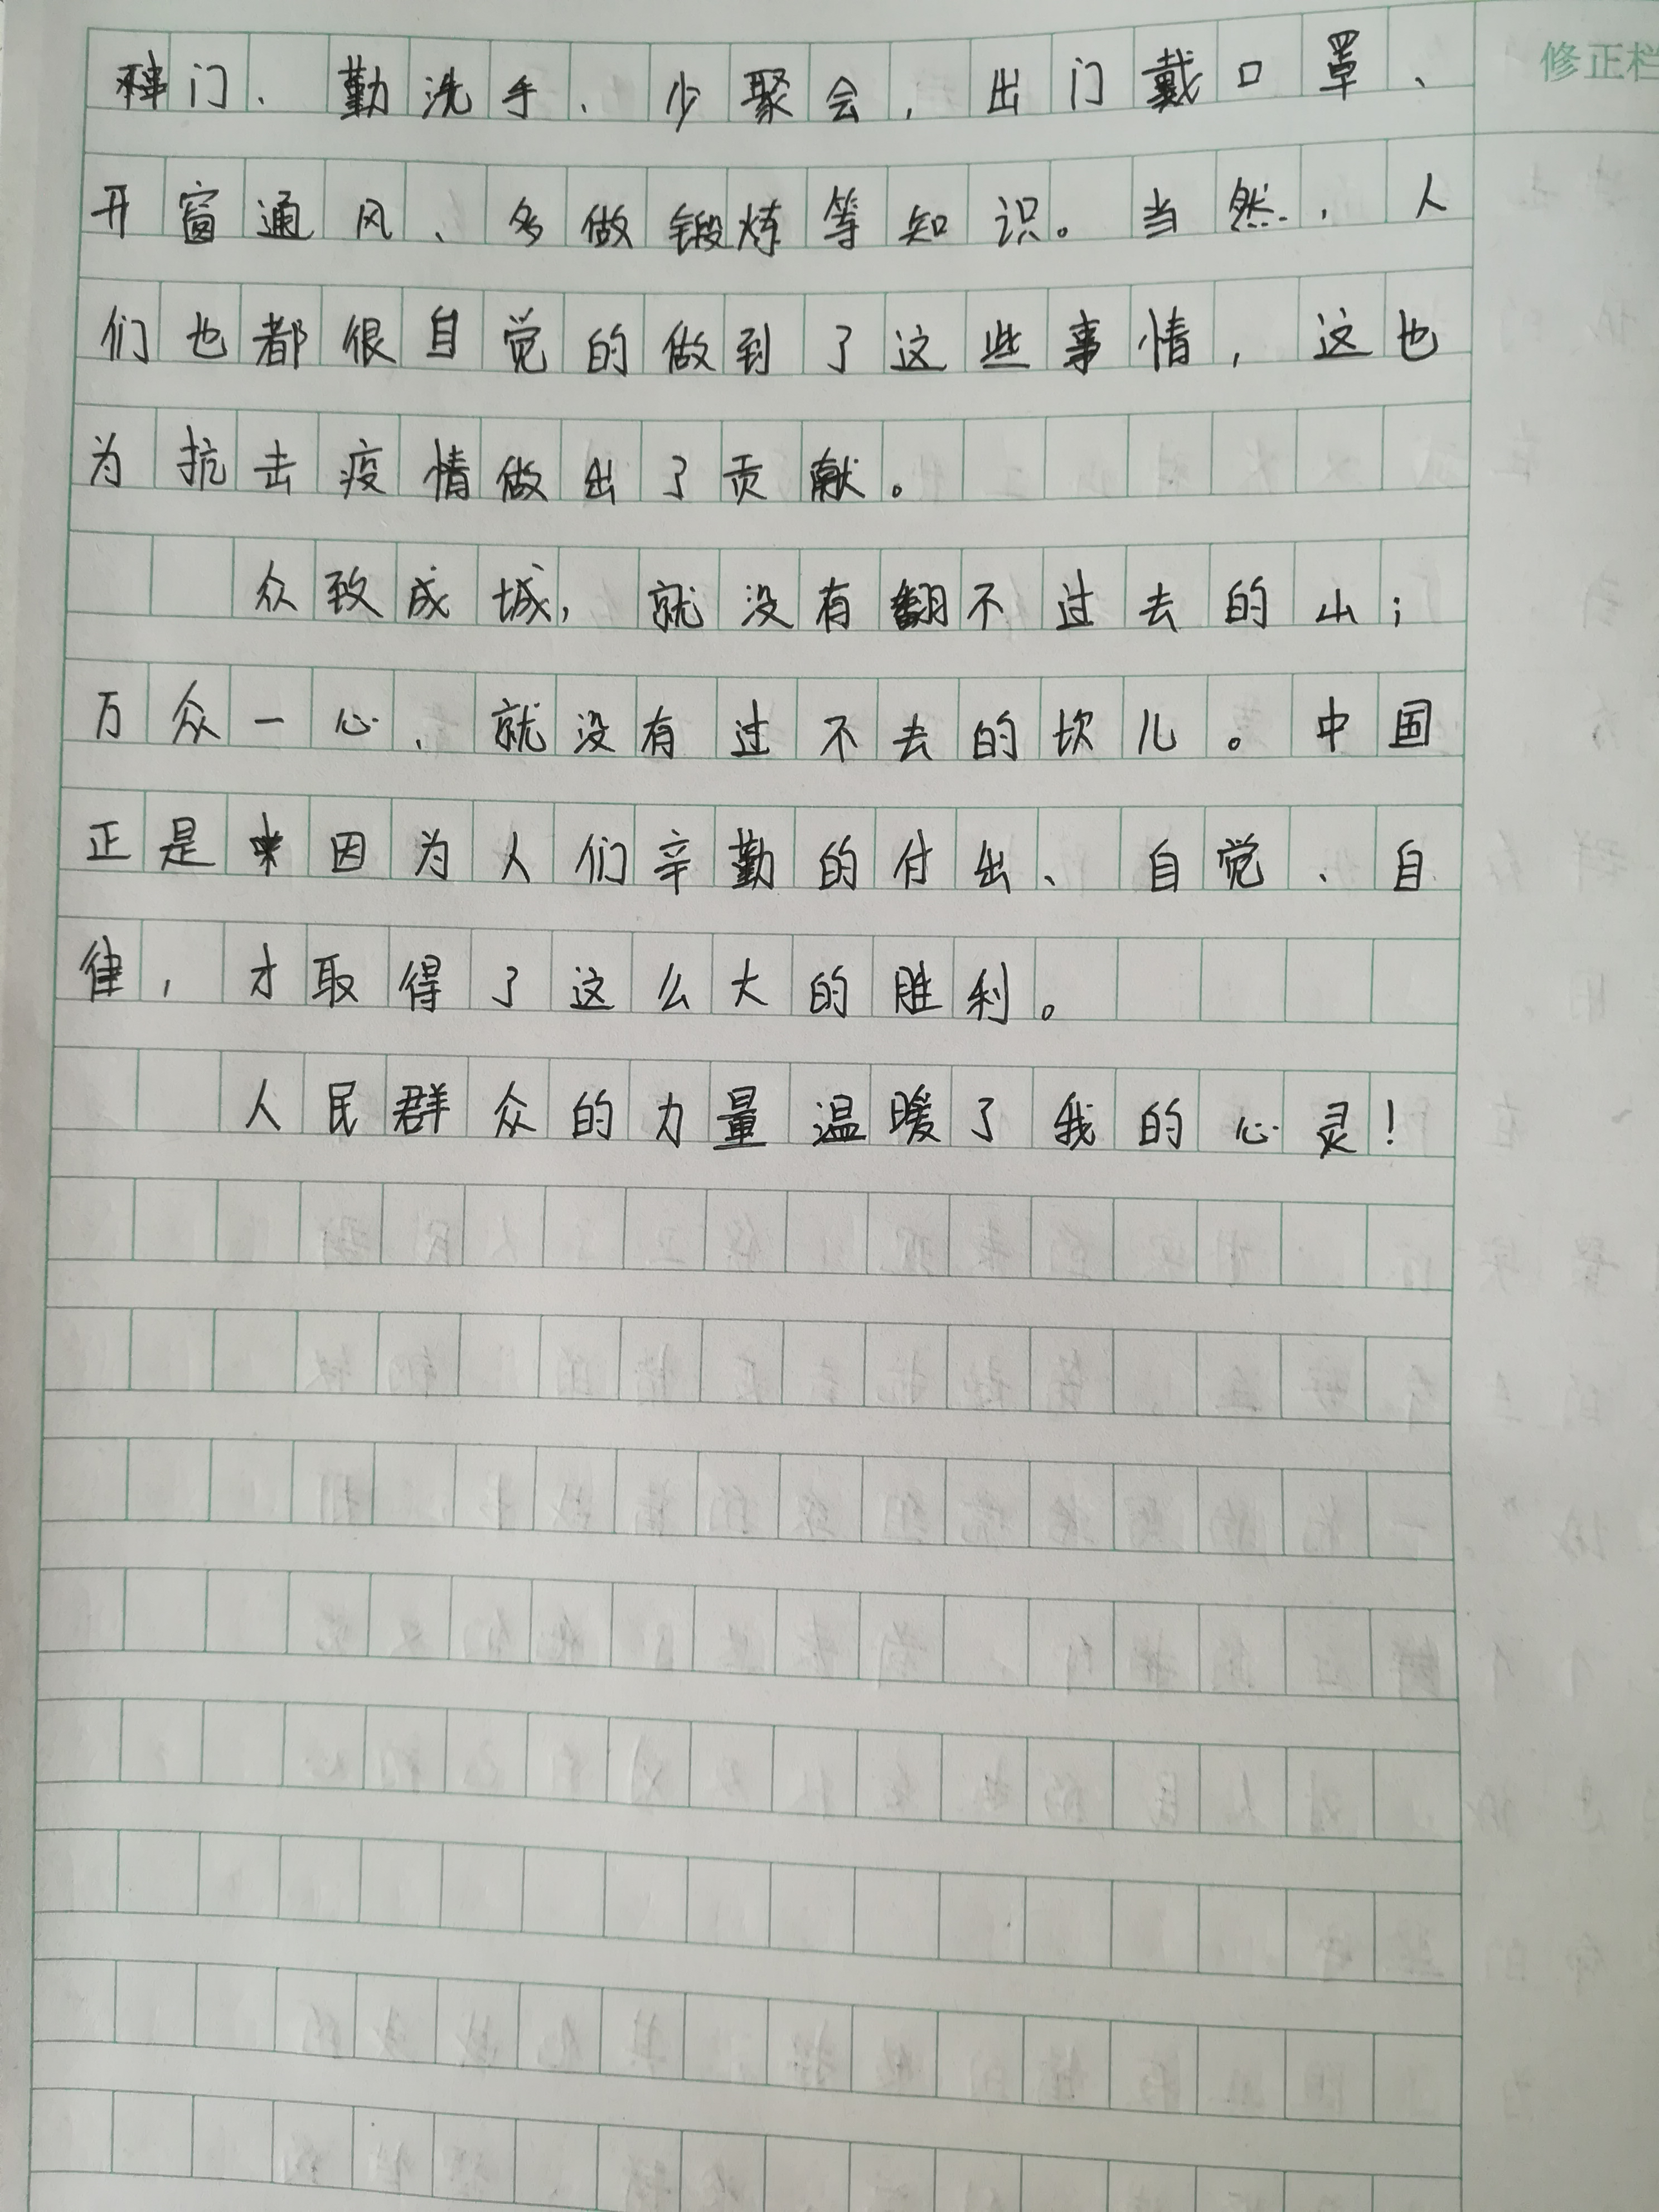 修正栏
门、勤洗手、少聚会，出门戴口罩、
开窗通风、多做锻炼等知识。当然，人
们也都很自觉的做到了这些事情，这也
为抗击疫情做出了贡献。
众致成城，就没有翻不过去的山；
万众一心，就没有过不去的坎儿。中国
正是因为人们辛勤的付出、自觉、自
律，才取得了这么大的胜利。
人民群众的力量温暖了我的心灵！